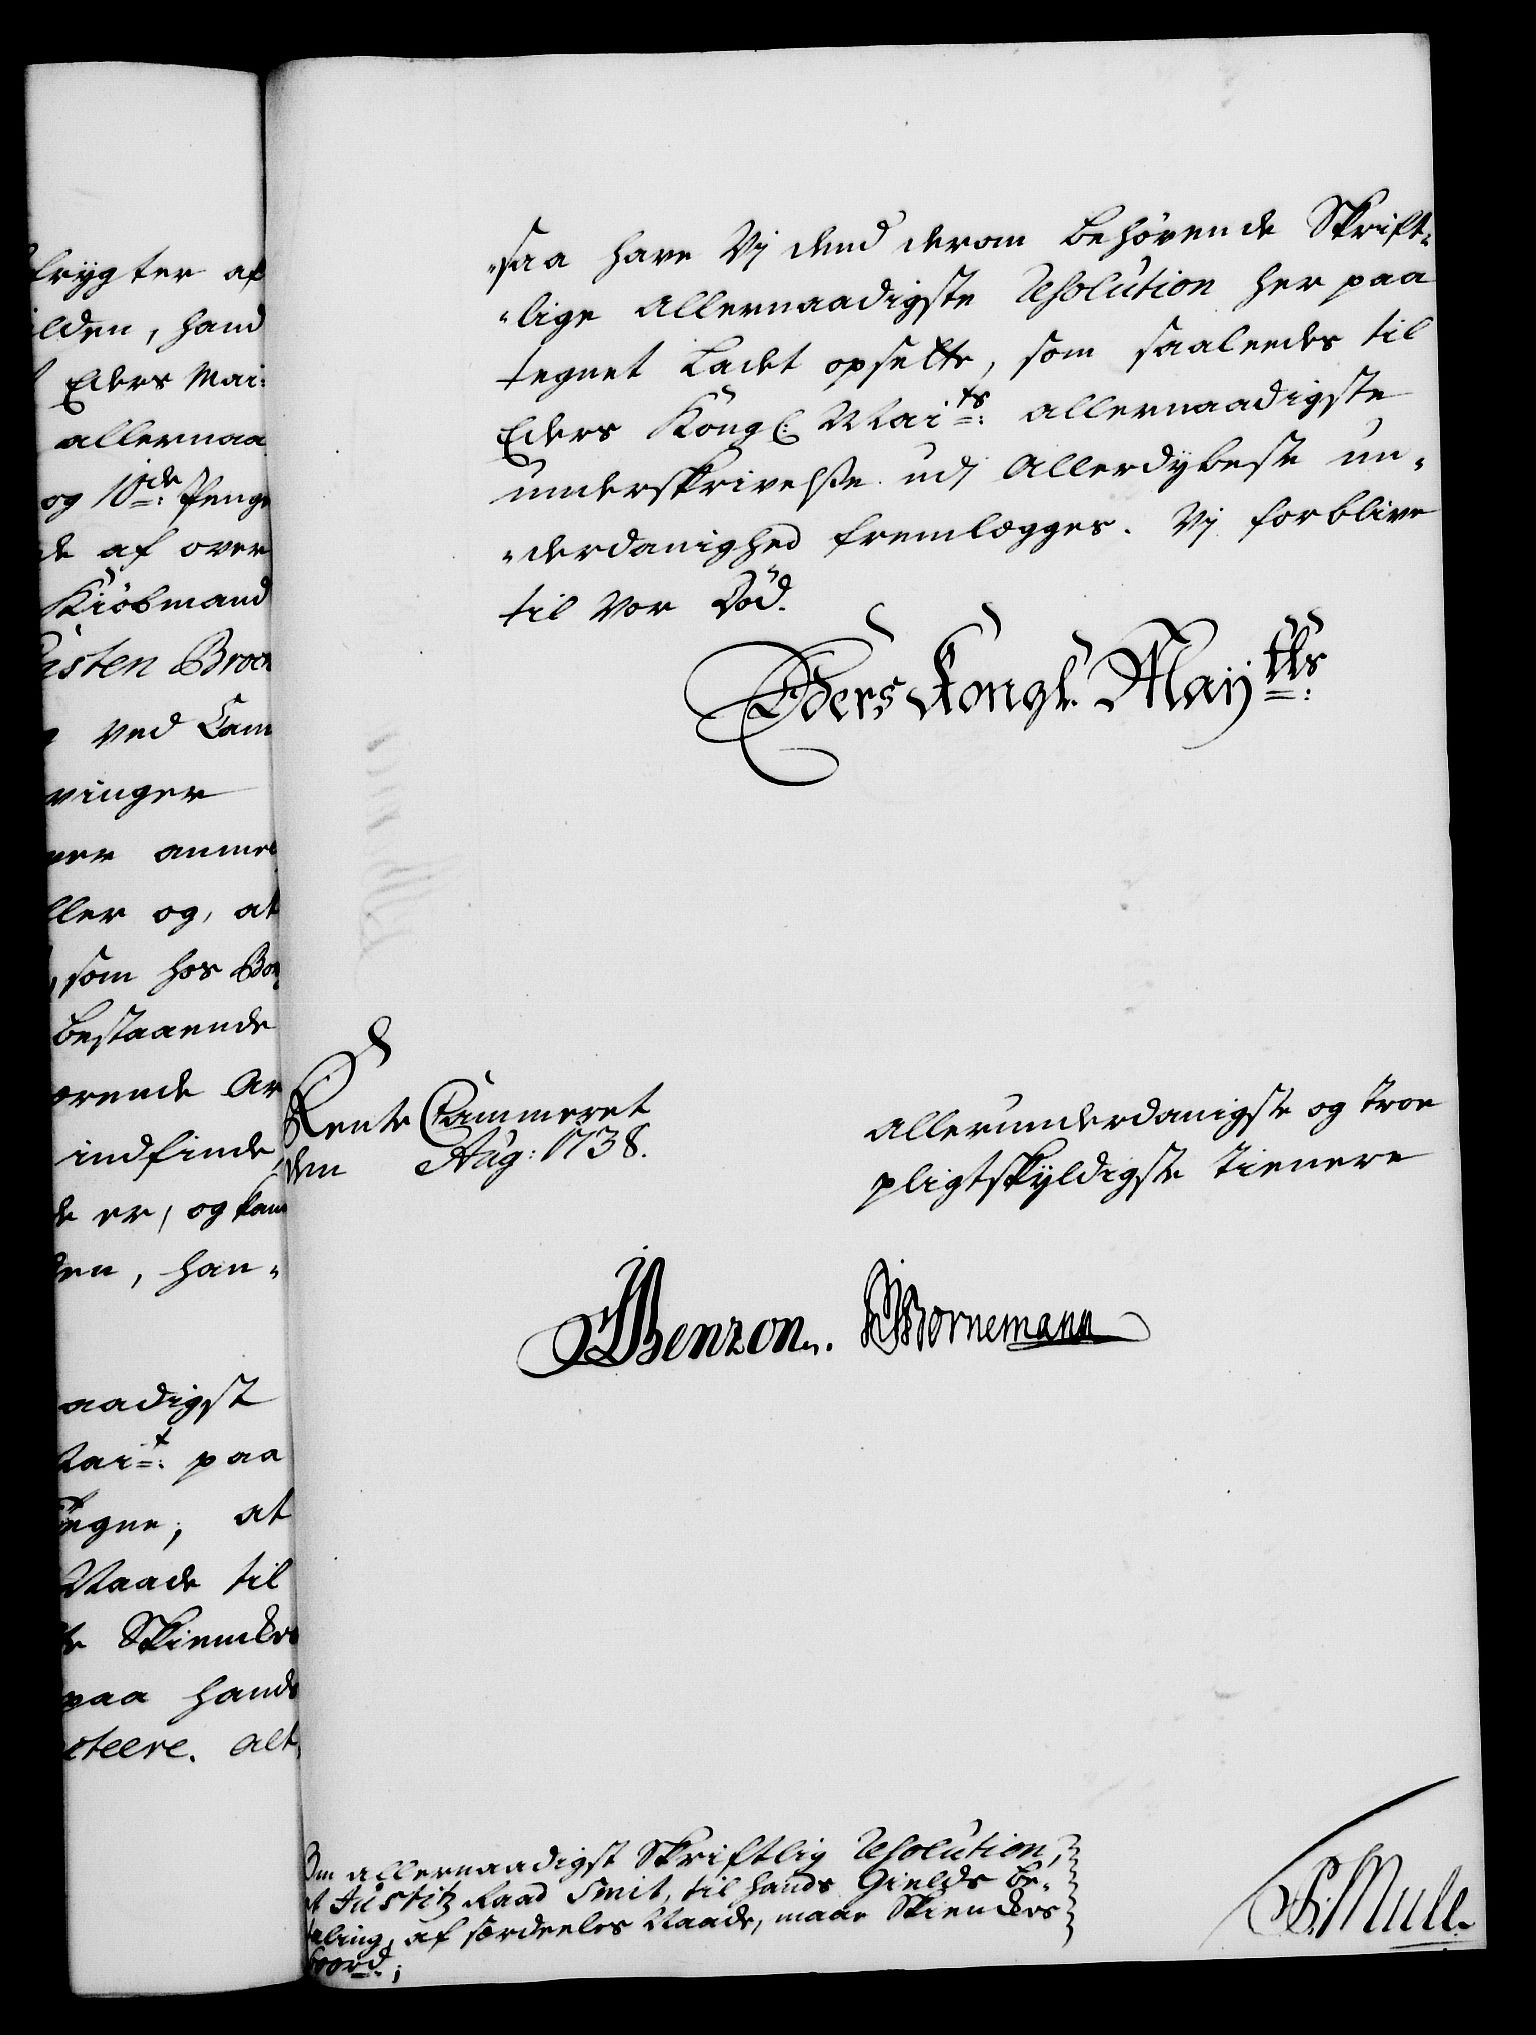 frygter af
ilden, hand
Eders Mai:
allernaa
og 10de: Penge
de af over
Kiöbmand
isten Broc
ved Cam
vinger
ver anmel
ller og, at
, som hos Bor
bestaaende
ørende Ar
indfinde
de er, og kand
den, han-
aadigst
Mait: paa
tegne, at
Maade til
te Skienckes
paa hands
cteere. alt,
saa have Vj dend derom behörende Skrift-
-lige allernaadigste Resolution her paa
tegnet Ladet opsette, som saaleedes til
Eders Köngl: Maits: allernaadigste
underskrivelse udj Allerdybeste un-
-derdanighed fremlegges. Vj forblive
til vor Död.
Eders Kongl. Mayttts:
Rente Cammeret
den Aug: 1738.
allerunderdanigste og troe
pligtskyldigste tienere
Benzon.
Bornemann
Om allernaadigst Skriftlig Resolution,
at Justitz Raad Smit, til hands Gields be-
taling, af særdeeles Naade, maae Skienckes
Foord.;
P: Mule.